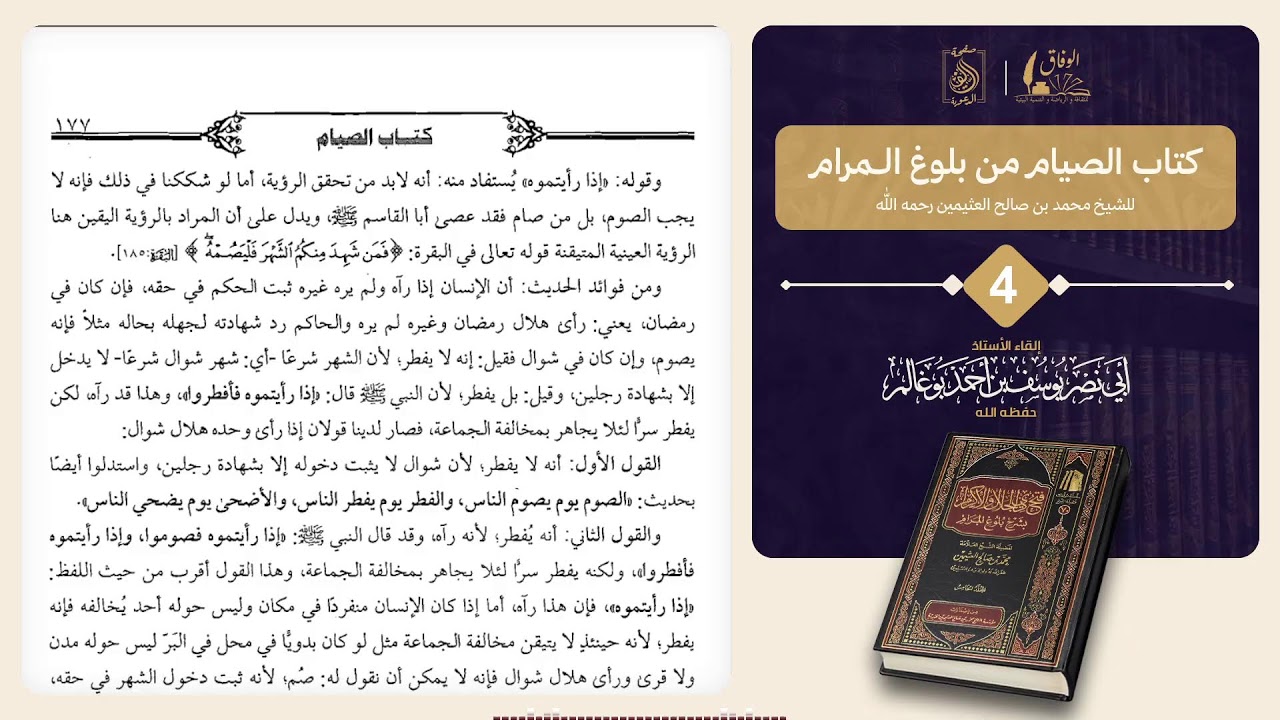 ١٧٧
كتاب الصيام
وقوله: «إذا رأيتموه» يُستفاد منه: أنه لابد من تحقق الرؤية، أما لو شككنا في ذلك فإنه لا
يجب الصوم، بل من صام فقد عصى أبا القاسم ﷺ، ويدل على أن المراد بالرؤية اليقين هنا
الرؤية العينية المتيقنة قوله تعالى في البقرة: ﴿فَمَن شَهِدَ مِنكُمُ الشَّهْرَ فَلْيَصُمْهُ﴾ [البقرة:١٨٥].
ومن فوائد الحديث: أن الإنسان إذا رآه ولم يره غيره ثبت الحكم في حقه، فإن كان في
رمضان، يعني: رأى هلال رمضان وغيره لم يره والحاكم رد شهادته لجهله بحاله مثلاً فإنه
يصوم، وإن كان في شوال فقيل: إنه لا يفطر؛ لأن الشهر شرعًا -أي: شهر شوال شرعًا- لا يدخل
إلا بشهادة رجلين، وقيل: بل يفطر؛ لأن النبي ﷺ قال: «إذا رأيتموه فأفطروا»، وهذا قد رآه، لكن
يفطر سرًّا لئلا يجاهر بمخالفة الجماعة، فصار لدينا قولان إذا رأى وحده هلال شوال:
القول الأول: أنه لا يفطر؛ لأن شوال لا يثبت دخوله إلا بشهادة رجلين، واستدلوا أيضًا
بحديث: «الصوم يوم يصوم الناس، والفطر يوم يفطر الناس، والأضحى يوم يضحي الناس».
والقول الثاني: أنه يُفطر؛ لأنه رآه، وقد قال النبي ﷺ: «إذا رأيتموه فصوموا، وإذا رأيتموه
فأفطروا»، ولكنه يفطر سرًّا لئلا يجاهر بمخالفة الجماعة، وهذا القول أقرب من حيث اللفظ:
«إذا رأيتموه»، فإن هذا رآه، أما إذا كان الإنسان منفردًا في مكان وليس حوله أحد يُخالفه فإنه
يفطر؛ لأنه حينئذٍ لا يتيقن مخالفة الجماعة مثل لو كان بدويًّا في محل في البَرّ ليس حوله مدن
ولا قرى ورأى هلال شوال فإنه لا يمكن أن نقول له: صُم؛ لأنه ثبت دخول الشهر في حقه،
الوفاق
صفحة
الدعوية
كتاب الصيام من بلوغ المرام
للشيخ محمد بن صالح العثيمين رحمه الله
4
إلقاء الأستاذ
أبي نصر يوسف بن أحمد بوغالم
حفظه الله
فتح ذي الجلال والإكرام
بشرح بلوغ المرام
لفضيلة الشيخ العلامة
محمد بن صالح العثيمين
المجلد الخامس